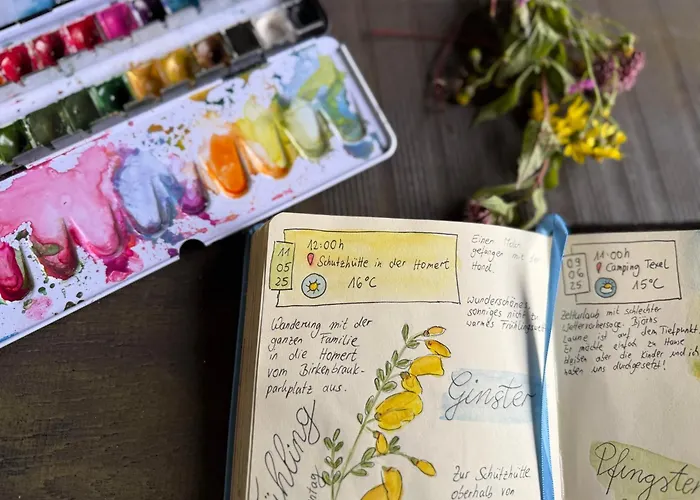 11
05
25
12:00h
Schutzhütte in der Homert
16°C
Einen
gefangen mit der
Hand.
Wunderschönes,
sonniges nicht zu
warmes Frühlingswetter
Wanderung mit der
ganzen Familie
in die Homert
vom Birkenbrauk-
parkplatz aus.
Ginster
Zur Schutzhütte
oberhalb von
09
06
25
11:00h
Camping Texel
15°C
Zelturlaub mit schlechter
Wettervorhersage. Björns
Laune ist auf dem Tiefpunkt.
Er möchte einfach zu Hause
bleiben aber die Kinder und ich
haben uns durchgesetzt!
Pfingsten